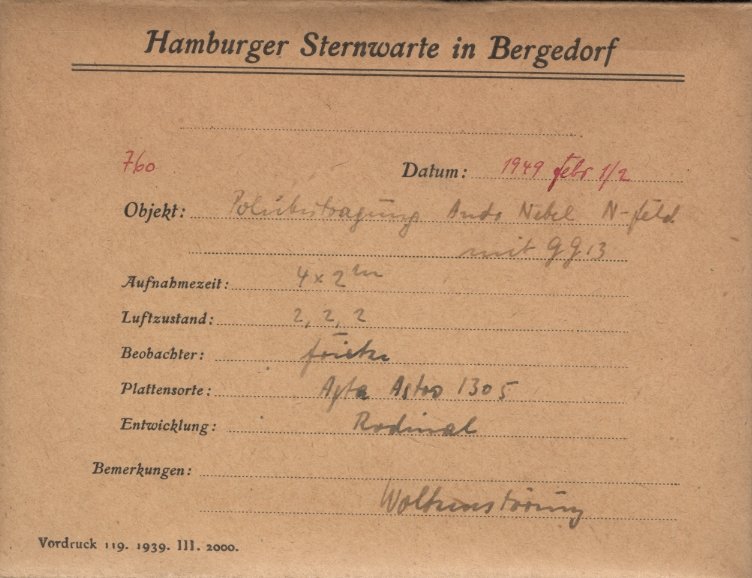 Hamburger Sternwarte in Bergedorf
760 Datum: 1949 Febr 1/2
Objekt: Polübertragung Andr Nebel N-Feld
mit GG 13
Aufnahmezeit: 4 x 2 m
Luftzustand: 2, 2, 2
Beobachter:
Plattensorte: Agfa Astro 1305
Entwicklung: Rodinal
Bemerkungen:
Wolkenstörung
Vordruck 119. 1939. III. 2000.